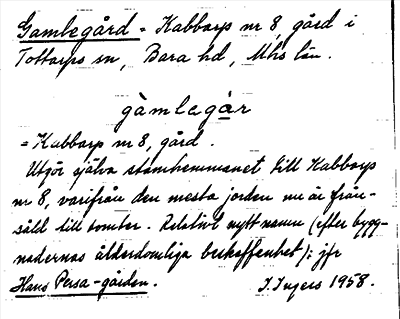 Gamlegård = Kabbarp nr 8, gård i
Tottarps sn, Bara hd, Mhs län.
gàmlegår
= Kabbarp nr 8, gård.
Utgör själva stamhemmanet till Kabbarps
nr 8, varifrån den mesta jorden nu är från-
såld till tomter. Relativt nytt namn (efter bygg-
nadernas ålderdomliga beskaffenhet); jfr
Hans Persa-gården. I. Ingers 1958.